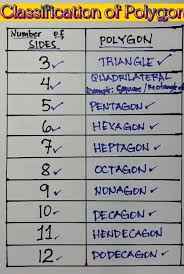 Classification of Polygon
Number of SIDES POLYGON
3 TRIANGLE
4 QUADRILATERAL
Example: Square / Rectangle
5 PENTAGON
6 HEXAGON
7 HEPTAGON
8 OCTAGON
9 NONAGON
10 DECAGON
11 HENDECAGON
12 DODECAGON